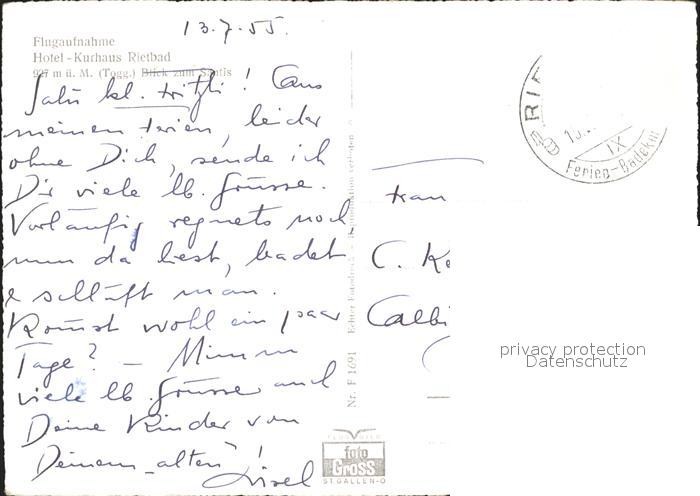 13.7.55.
Flugaufnahme
Hotel-Kurhaus Rietbad
927 m ü. M. (Togg.) Blick zum Säntis
Salü kl. Fritzli! Aus
meinen Ferien, leider
ohne Dich, sende ich
Dir viele lb. Grüsse.
Vorläufig regnets noch,
nun da liest, badet
& schläft man.
Kommst wohl ein paar
Tage? – Nimm
viele lb. Grüsse und
Deine Kinder von
Deinem „alten"!
Lisel
Nr. F 1691
Echter Fotodruck
Reproduktion verboten
foto
Gross
ST. GALLEN-O
RIE
IX
Ferien-Badekur
Frau
C.
privacy protection
Datenschutz